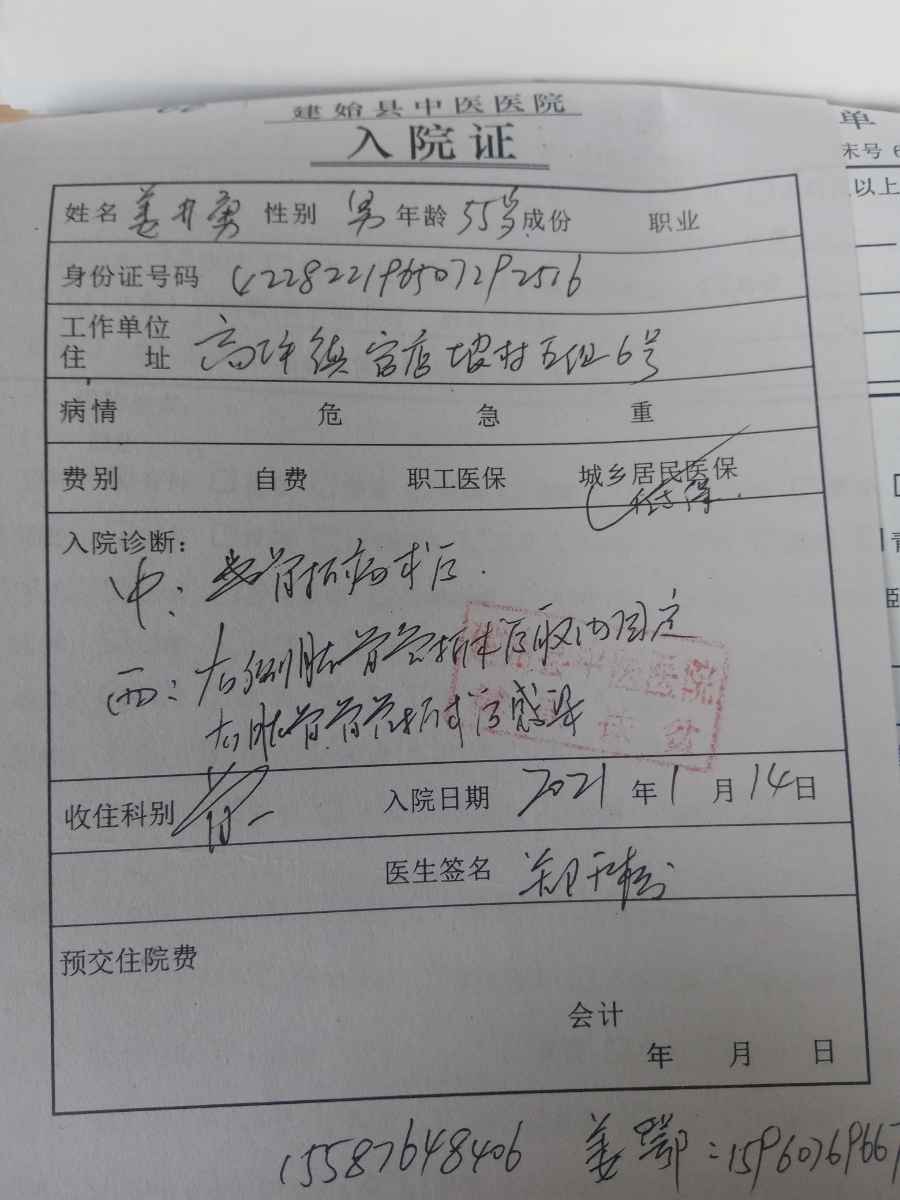 建始县中医医院
入院证
单
末号 6
以上
姓名 姜 性别 男 年龄 55岁 成份 职业
身份证号码 422822196507292516
工作单位
住址 高坪镇 店坡村五组6号
病情 危 急 重
费别 自费 职工医保 城乡居民医保
入院诊断:
中: 骨折病术后.
西: 右侧胫骨骨折术后取内固定
右胫骨骨折术后感染
收住科别 骨一 入院日期 2021年1月14日
医生签名
预交住院费
会计
年 月 日
15587648406 姜鄂:1596076966